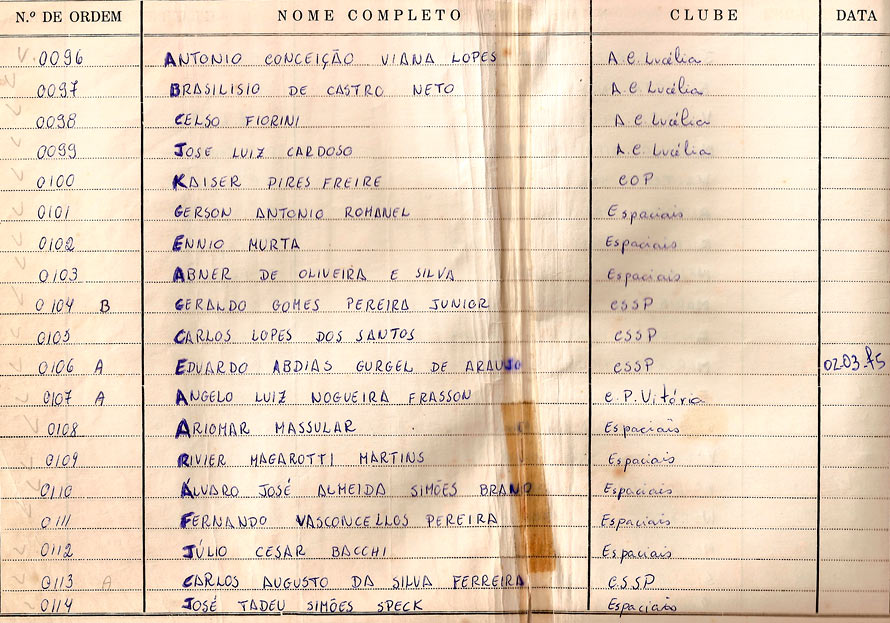 N.º DE ORDEM NOME COMPLETO CLUBE DATA
0096 ANTONIO CONCEIÇÃO VIANA LOPES A.C. Lucélia
0097 BRASILISIO DE CASTRO NETO A.C. Lucélia
0098 CELSO FIORINI A C Lucélia
0099 JOSE LUIZ CARDOSO A.C. Lucélia
0100 KAISER PIRES FREIRE COP
0101 GERSON ANTONIO ROMANEL Espaciais
0102 ENNIO MURTA Espaciais
0103 ABNER DE OLIVEIRA E SILVA Espaciais
0104 B GERALDO GOMES PEREIRA JUNIOR CSSP
0105 CARLOS LOPES DOS SANTOS CSSP
0106 A EDUARDO ABDIAS GURGEL DE ARAUJO CSSP 02.03.75
0107 A ANGELO LUIZ NOGUEIRA FRASSON C.P. Vitória
0108 ARIOMAR MASSULAR Espaciais
0109 RIVIER MAGAROTTI MARTINS Espaciais
0110 ÁLVARO JOSÉ ALMEIDA SIMÕES BRANO Espaciais
0111 FERNANDO VASCONCELLOS PEREIRA Espaciais
0112 JÚLIO CESAR BACCHI Espaciais
0113 A CARLOS AUGUSTO DA SILVA FERREIRA C.S.S.P
0114 JOSÉ TADEU SIMÕES SPECK Espaciais